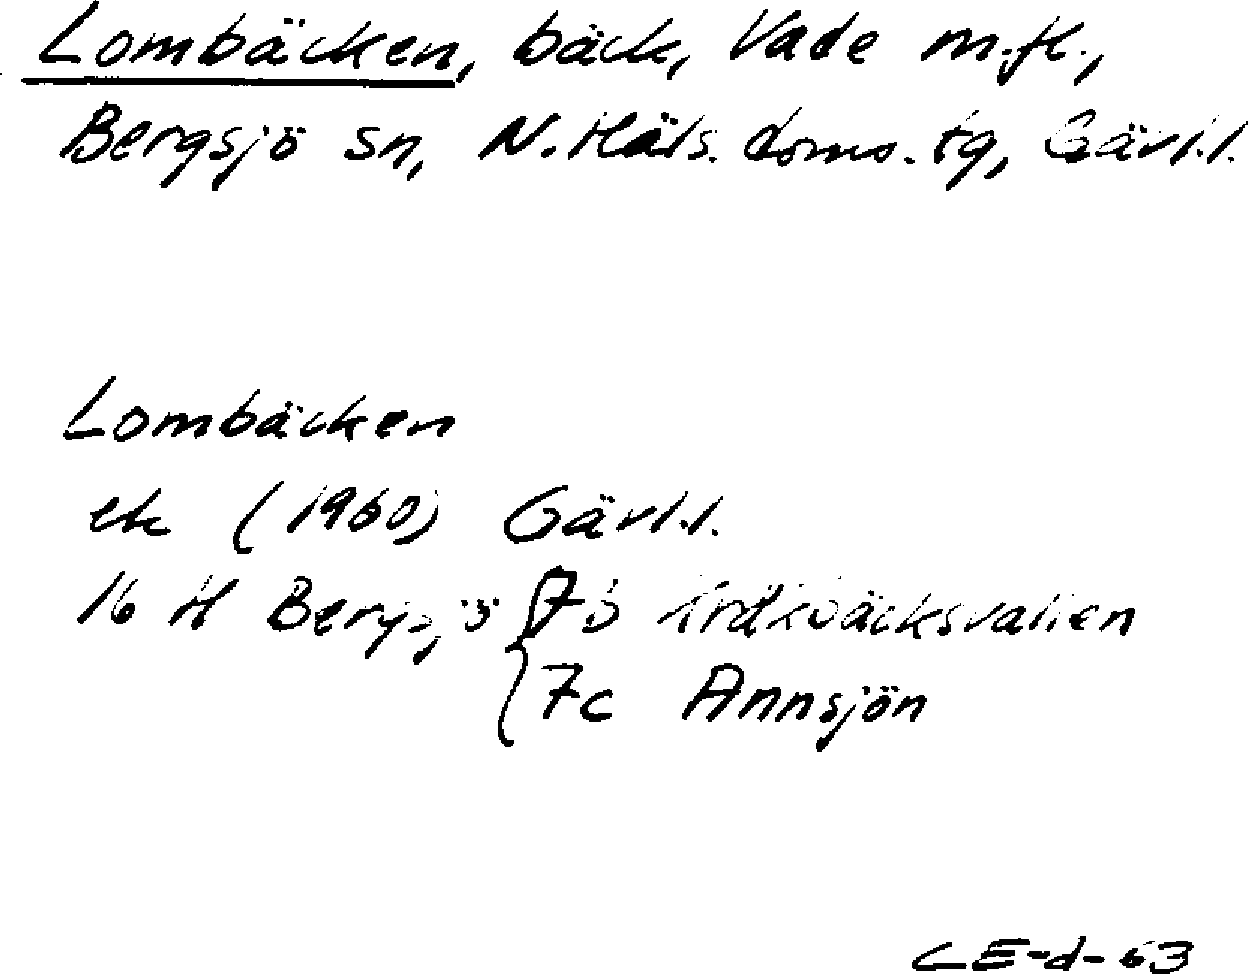 Lombäcken, bäck, Vade m.fl.,
Bergsjö sn, N. Häls. doms. tg, Gävl.l.
Lombäcken
ek (1960) Gävl.l.
16 H Bergsjö 7b
7c Annsjön
CE-d-63